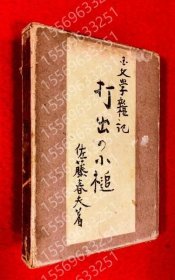 文學雜記
打出の小槌
佐藤春夫著
15569633251
15569633251
15569633251